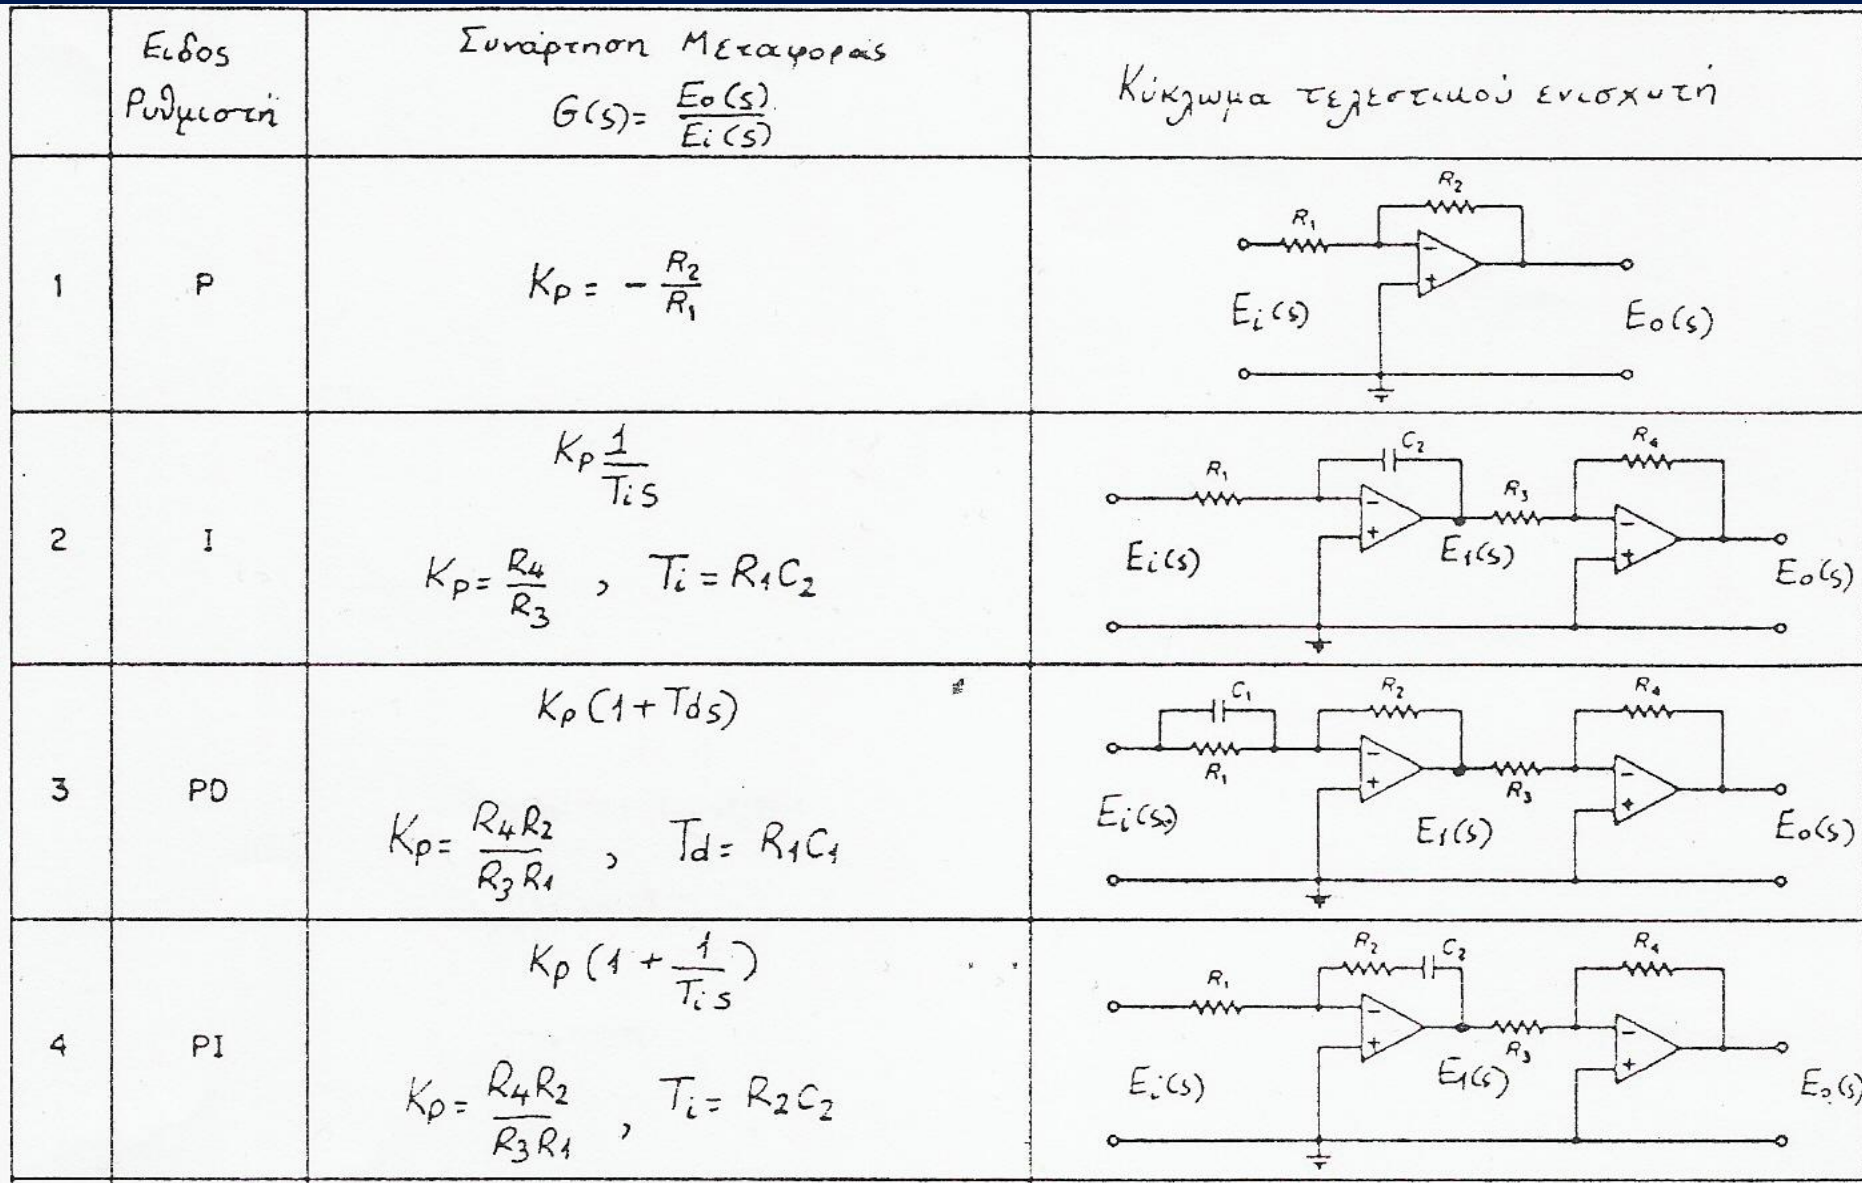 Ειδος
Ρυθμιστή
Συνάρτηση Μεταφοράς
G(s)= Eo(s) / Ei(s)
Κύκλωμα τελεστικού ενισχυτή
1
P
Kp = - R2 / R1
R2
R1
−
+
Ei(s)
Eo(s)
2
I
Kp 1 / Tis
Kp= R4 / R3 , Ti = R1C2
C2
R4
R1
R3
−
+
−
+
Ei(s)
E1(s)
Eo(s)
3
PD
Kp (1+Tds)
Kp= R4R2 / R3R1 , Td= R1C1
C1
R2
R4
R1
R3
−
+
−
+
Ei(s)
E1(s)
Eo(s)
4
PI
Kp (1 + 1 / Tis)
Kp= R4R2 / R3R1 , Ti= R2C2
R2
C2
R4
R1
R3
−
+
−
+
Ei(s)
E1(s)
Eo(s)